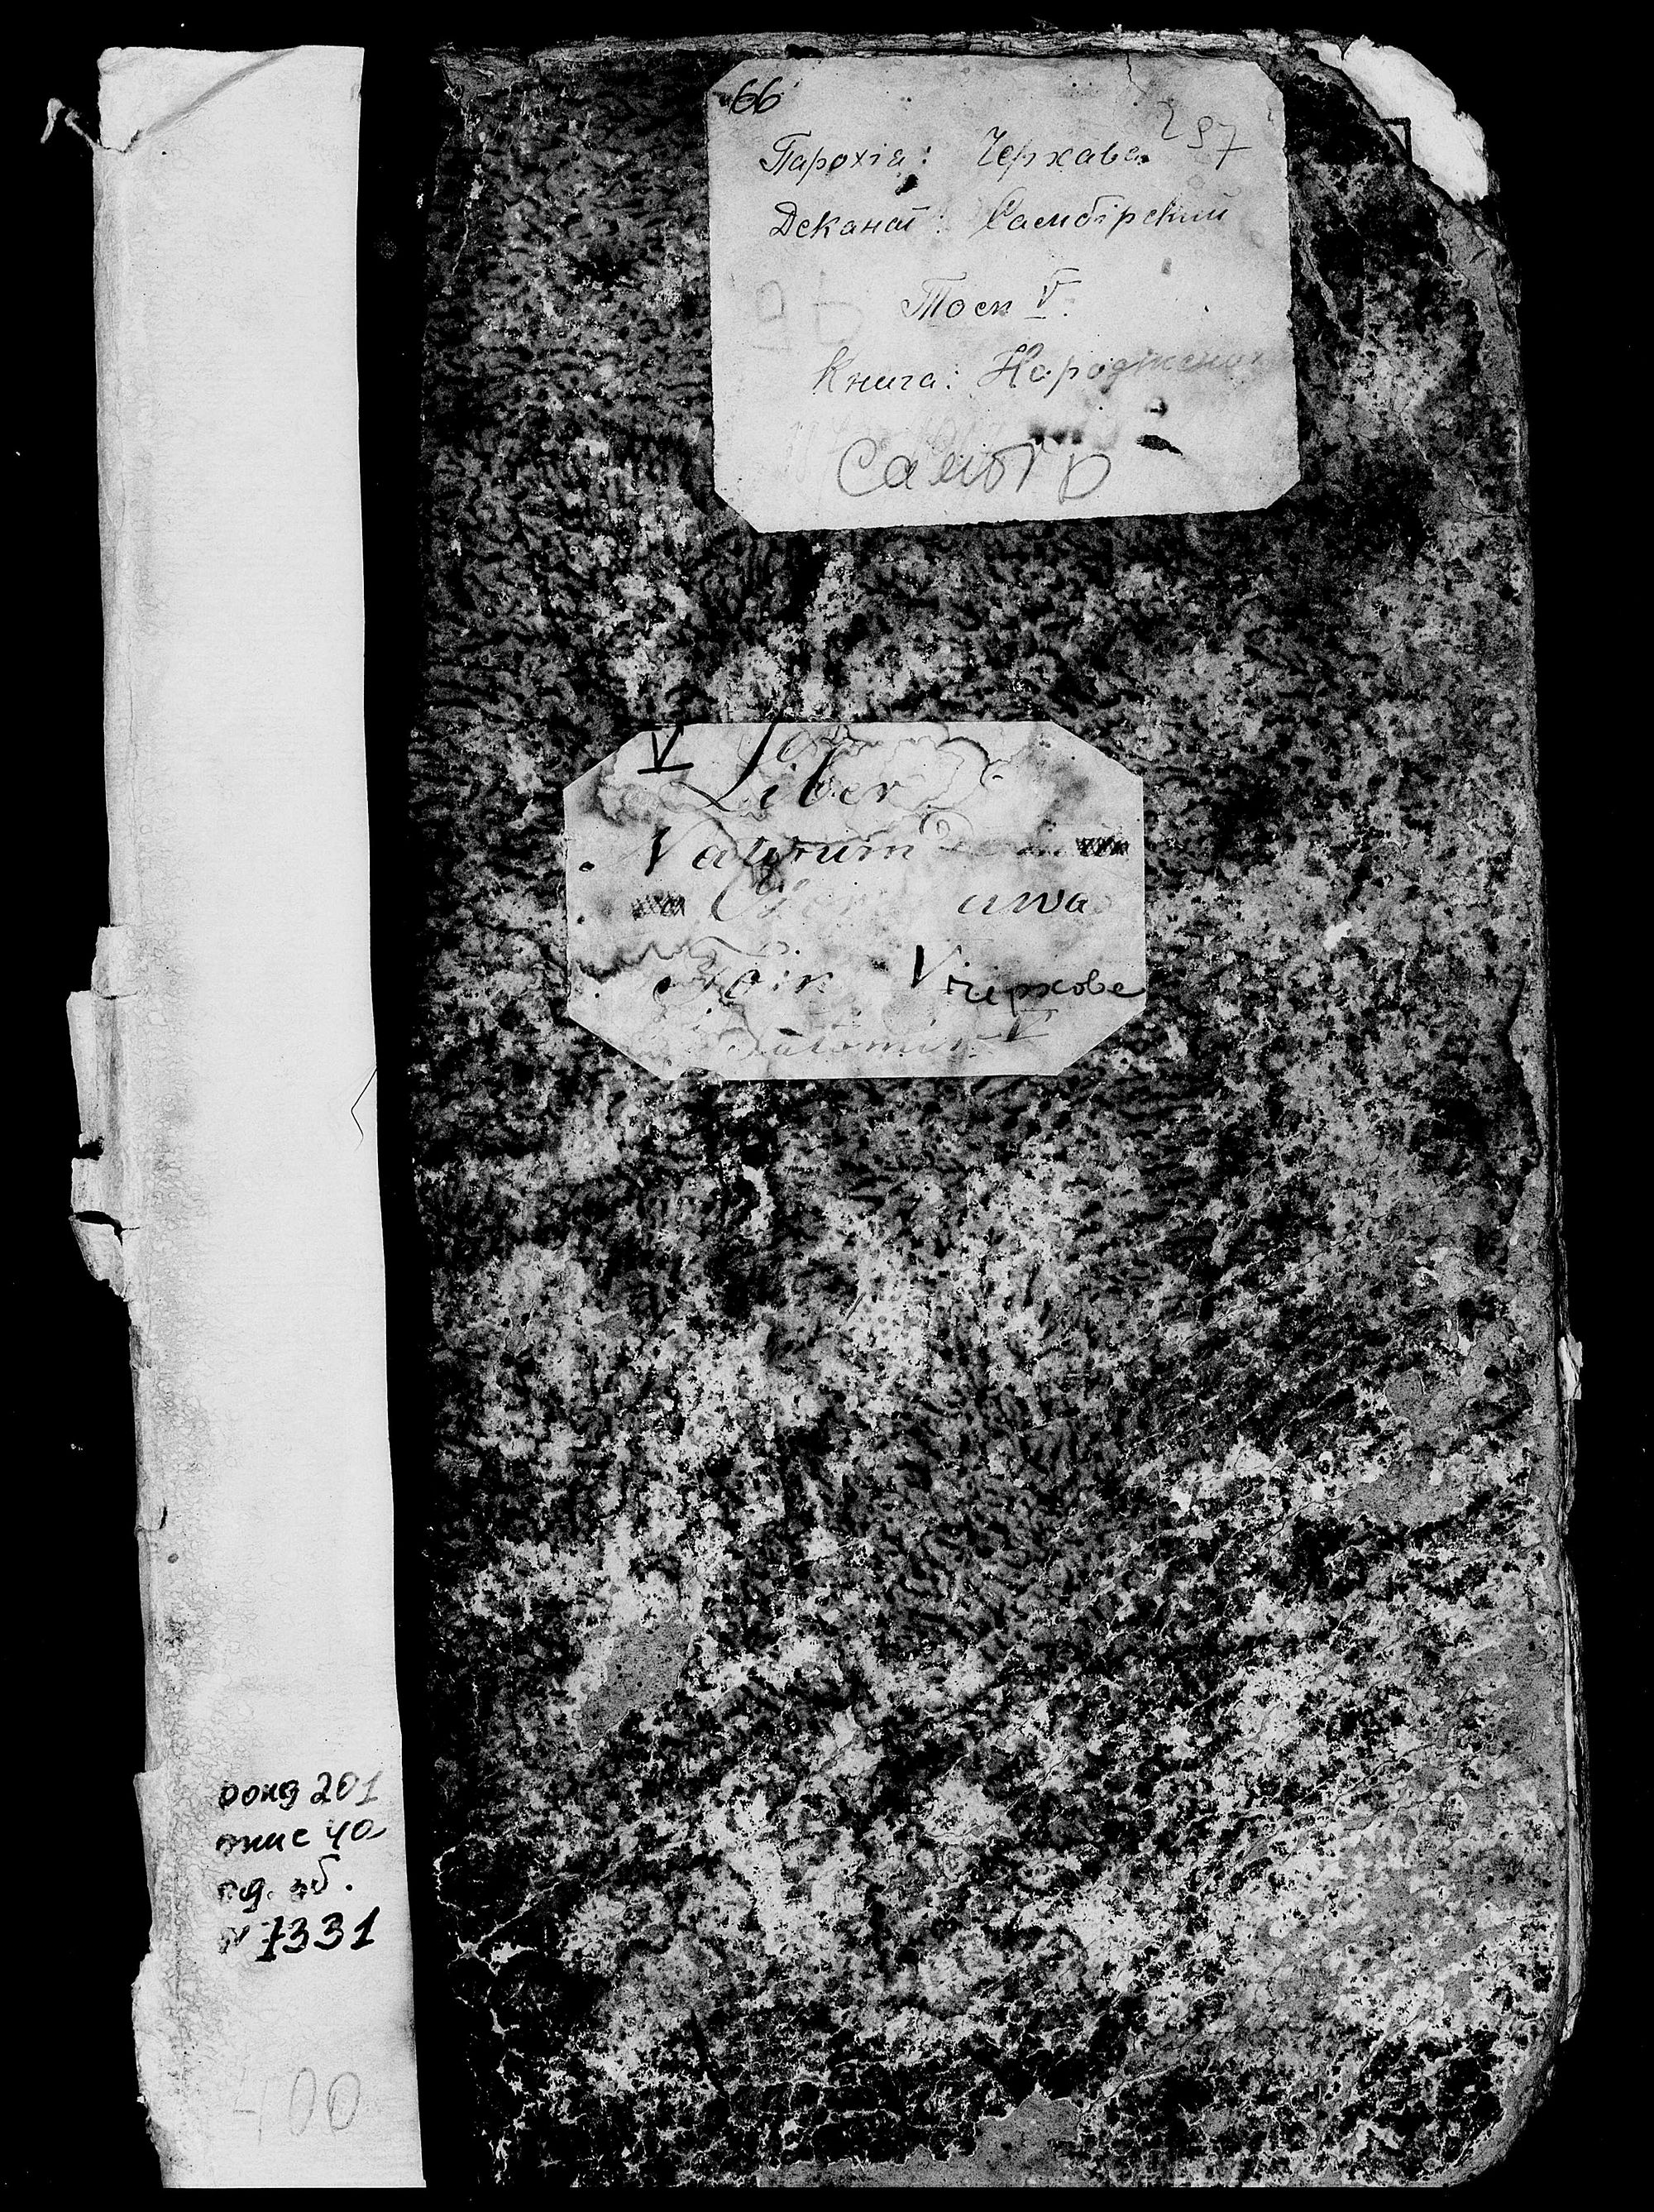 66
297
Парохія: Черхава
Деканат: Самбірский
Том V.
Книга: Народжених
Самбір
V
Liber
Natorum
Tom V Черхове
V
фонд 201
опис 4а
од. зб.
N 7331
400